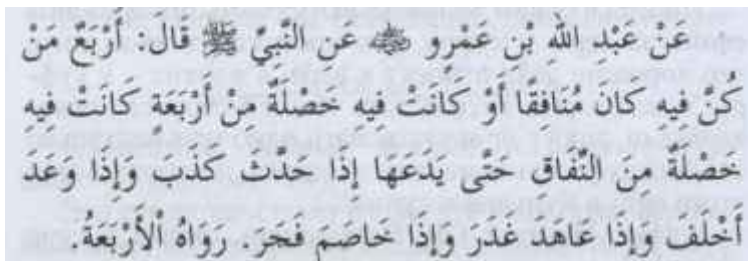 عَنْ عَبْدِ اللهِ بْنِ عَمْرٍو ﷺ عَنِ النَّبِيِّ ﷺ قَالَ: أَرْبَعٌ مَنْ
كُنَّ فِيهِ كَانَ مُنَافِقًا أَوْ كَانَتْ فِيهِ خَصْلَةٌ مِنْ أَرْبَعَةٍ كَانَتْ فِيهِ
خَصْلَةٌ مِنَ النِّفَاقِ حَتَّى يَدَعَهَا إِذَا حَدَّثَ كَذَبَ وَإِذَا وَعَدَ
أَخْلَفَ وَإِذَا عَاهَدَ غَدَرَ وَإِذَا خَاصَمَ فَجَرَ. رَوَاهُ الْأَرْبَعَةُ.